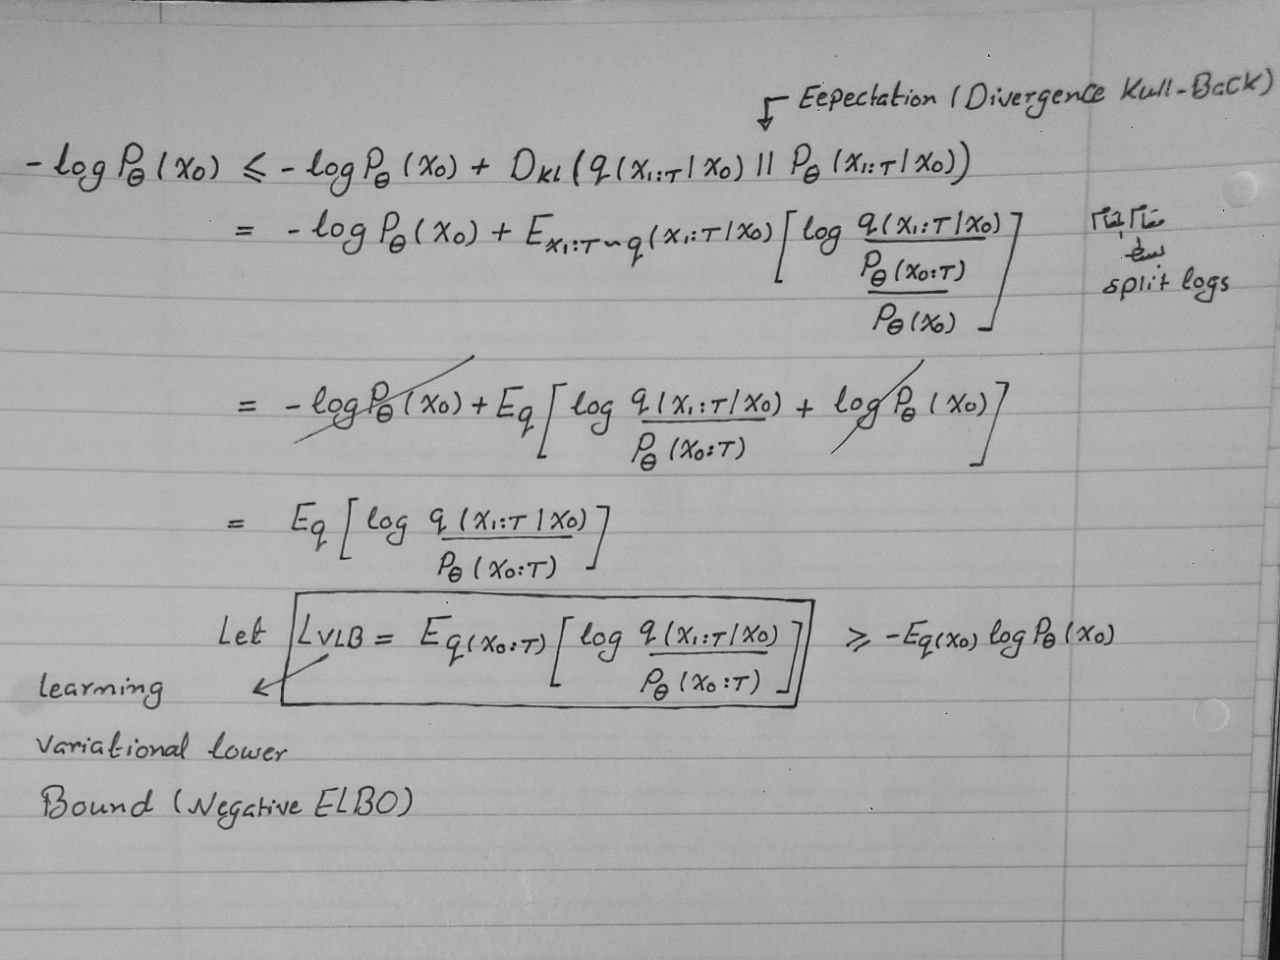 Eepectation (Divergence Kull-Back)
-log Pθ(x0) ≤ -log Pθ(x0) + DKL(q(x1:T|x0) || Pθ(x1:T|x0))
= -log Pθ(x0) + Ex1:T~q(x1:T|x0) [log q(x1:T|x0) / (Pθ(x0:T) / Pθ(x0))]
split logs
= -log Pθ(x0) + Eq [log q(x1:T|x0) / Pθ(x0:T) + log Pθ(x0)]
= Eq [log q(x1:T|x0) / Pθ(x0:T)]
Let LVLB = Eq(x0:T) [log q(x1:T|x0) / Pθ(x0:T)] ≥ -Eq(x0) log Pθ(x0)
learning
variational lower
Bound (Negative ELBO)